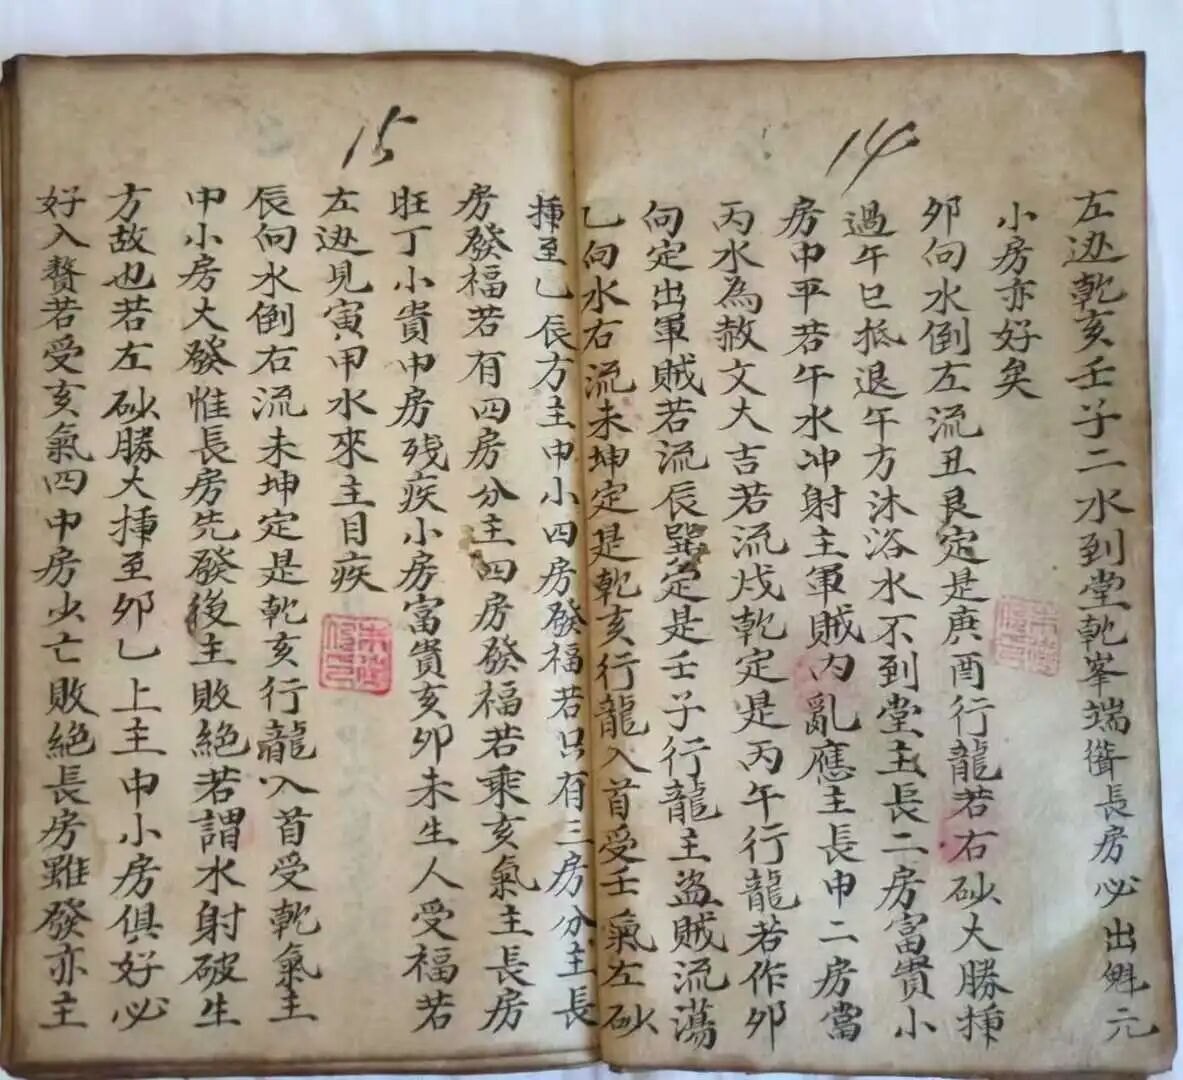 14
左边乾亥壬子二水到堂乾峯端聳長房必出魁元
小房亦好矣
卯向水倒左流丑艮定是庚酉行龍若右砂大勝揷
過午巳抵退午方沐浴水不到堂主長二房富貴小
房中平若午水冲射主軍賊内亂應主長中二房當
丙水為赦文大吉若流戌乾定是丙午行龍若作卯
向定出軍賊若流辰巽定是壬子行龍主盗賊流蕩
乙向水右流未坤定是乾亥行龍入首受壬氣左砂
15
揷至乙辰方主中小四房發福若只有三房分主長
房發福若有四房分主四房發福若乘亥氣主長房
旺丁小貴中房残疾小房富貴亥卯未生人受福若
左边見寅甲水來主目疾
辰向水倒右流未坤定是乾亥行龍入首受乾氣主
中小房大發惟長房先發後主敗絕若謂水射破生
方故也若左砂勝大揷至卯乙上主中小房俱好必
好入赘若受亥氣四中房少亡敗絕長房雖發亦主